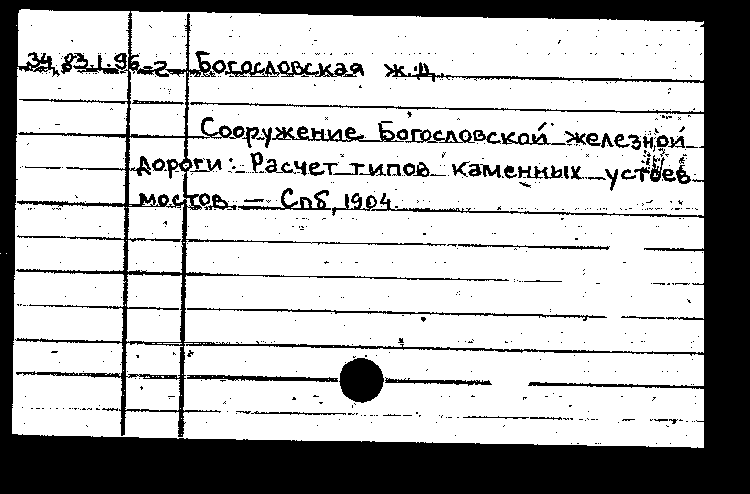 34.83.1.96-2 Богословская ж.д.
Сооружение Богословской железной
дороги: Расчет типов каменных устоев
мостов. — Спб, 1904.